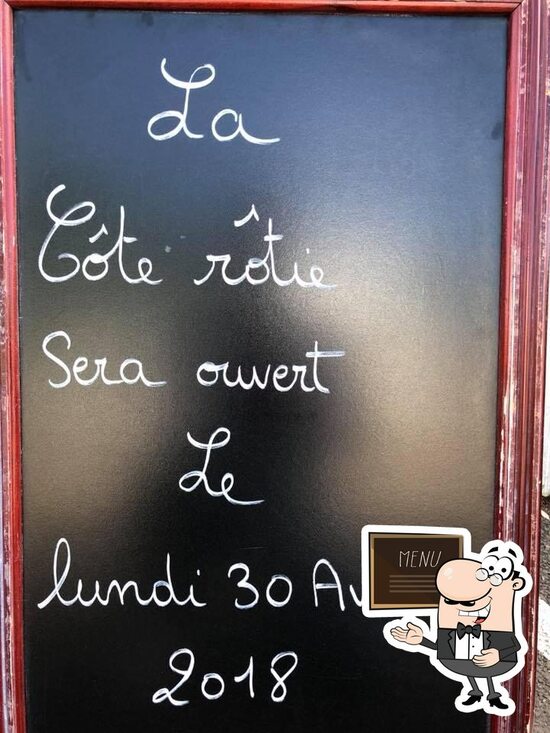 La
Côte rôtie
Sera ouvert
Le
lundi 30 Av
2018
MENU